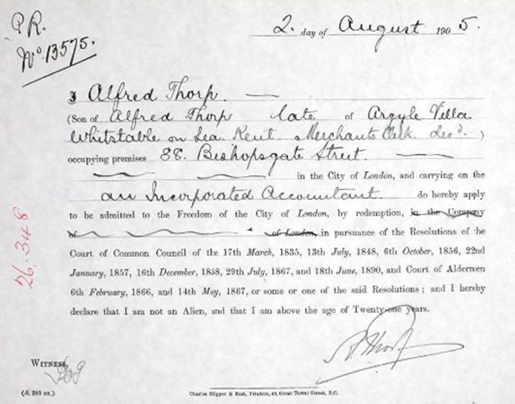 P.R.
No 13575.
2. day of August 1905.
I Alfred Thorp.
(Son of Alfred Thorp late of Argyle Villa
Whitstable on Sea Kent. Merchants Clerk Decd.)
occupying premises 88. Bishopsgate Street.
in the City of London, and carrying on the
an Incorporated Accountant. do hereby apply
to be admitted to the Freedom of the City of London, by redemption, in the Company
of London, in pursuance of the Resolutions of the
Court of Common Council of the 17th March, 1835, 13th July, 1848, 6th October, 1856, 22nd
January, 1857, 16th December, 1858, 29th July, 1867, and 18th June, 1890, and Court of Aldermen
6th February, 1866, and 14th May, 1867, or some or one of the said Resolutions; and I hereby
declare that I am not an Alien, and that I am above the age of Twenty-one years.
26.348
A Thorp
Witness,
Charles Skipper & East, Printers, 49, Great Tower Street, E.C.